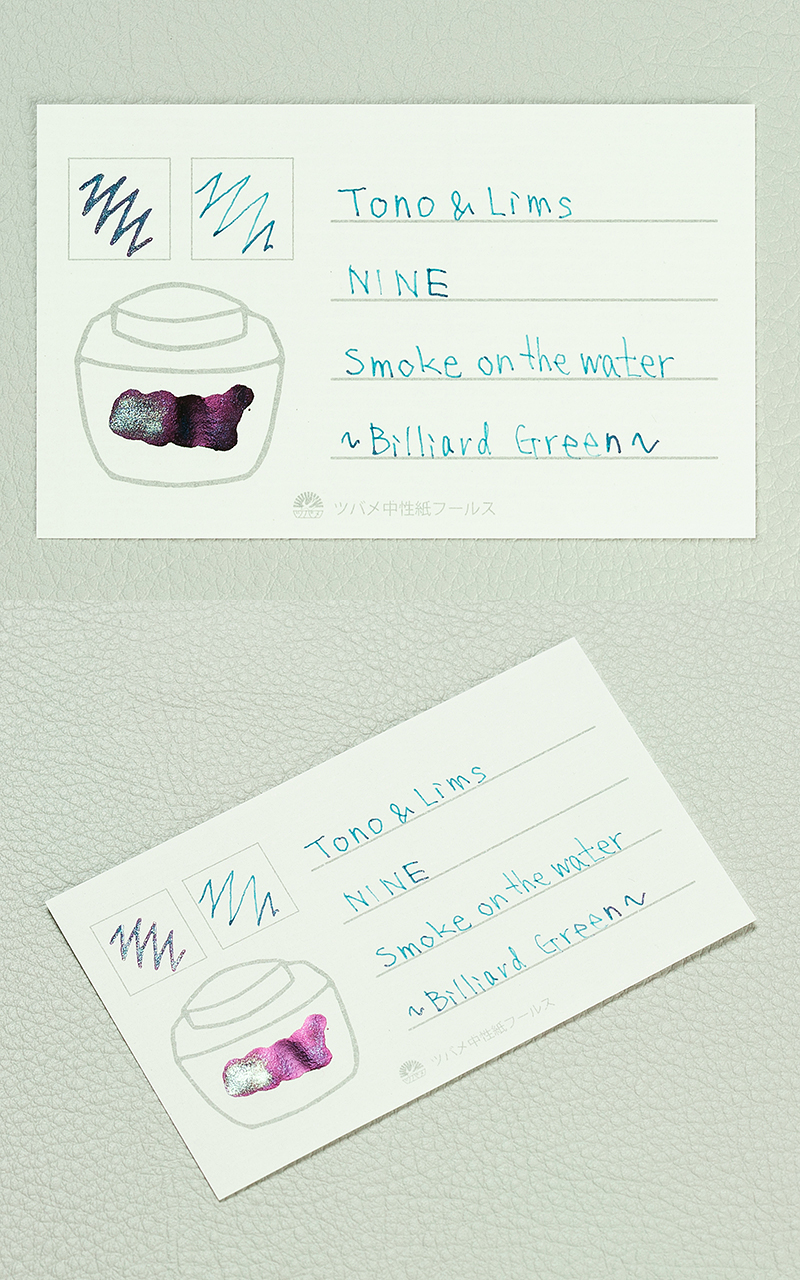 Tono & Lims
NINE
Smoke on the water
~Billiard Green~
ツバメ中性紙フールス
Tono & Lims
NINE
Smoke on the water
~Billiard Green~
ツバメ中性紙フールス